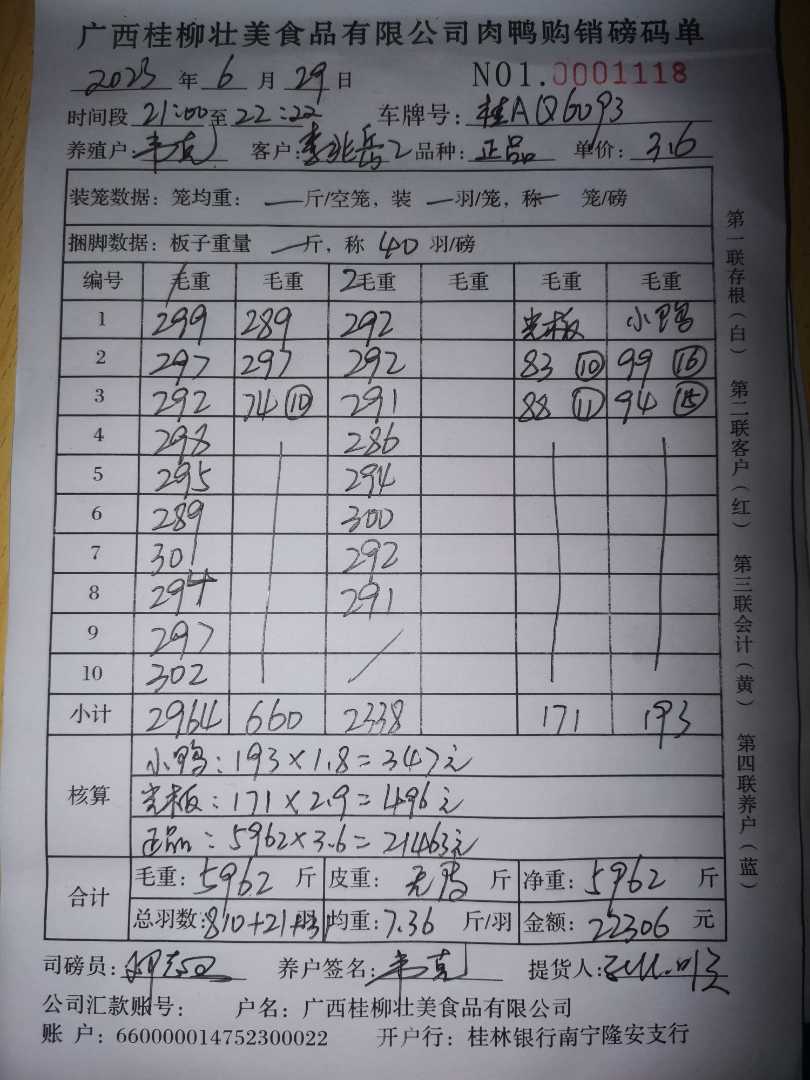 广西桂柳壮美食品有限公司肉鸭购销磅码单
2023 年 6 月 29 日 NO1.0001118
时间段 21:00 至 22:22 车牌号: 桂AQ6093
养殖户: 韦克 客户: 李兆岳2 品种: 正品 单价: 3.6
装笼数据: 笼均重: 一 斤/空笼, 装 一 羽/笼, 称 一 笼/磅
捆脚数据: 板子重量 一 斤, 称 40 羽/磅
编号 1毛重 毛重 2毛重 毛重 毛重 毛重
1 299 289 292 光板 小鸭
2 297 297 292 83 ⑩ 99 ⑯
3 292 74 ⑩ 291 88 ⑪ 94 ⑮
4 298 286
5 295 294
6 289 300
7 301 292
8 294 291
9 297
10 302
小计 2964 660 2338 171 193
核算
小鸭: 193×1.8=347元
光板: 171×2.9=496元
正品: 5962×3.6=21463元
合计
毛重: 5962 斤 皮重: 无鸭 斤 净重: 5962 斤
总羽数: 810+21+31 均重: 7.36 斤/羽 金额: 22306 元
司磅员: 养户签名: 韦克 提货人:
公司汇款账号: 户名: 广西桂柳壮美食品有限公司
账 户: 660000014752300022 开户行: 桂林银行南宁隆安支行
第一联存根(白) 第二联客户(红) 第三联会计(黄) 第四联养户(蓝)